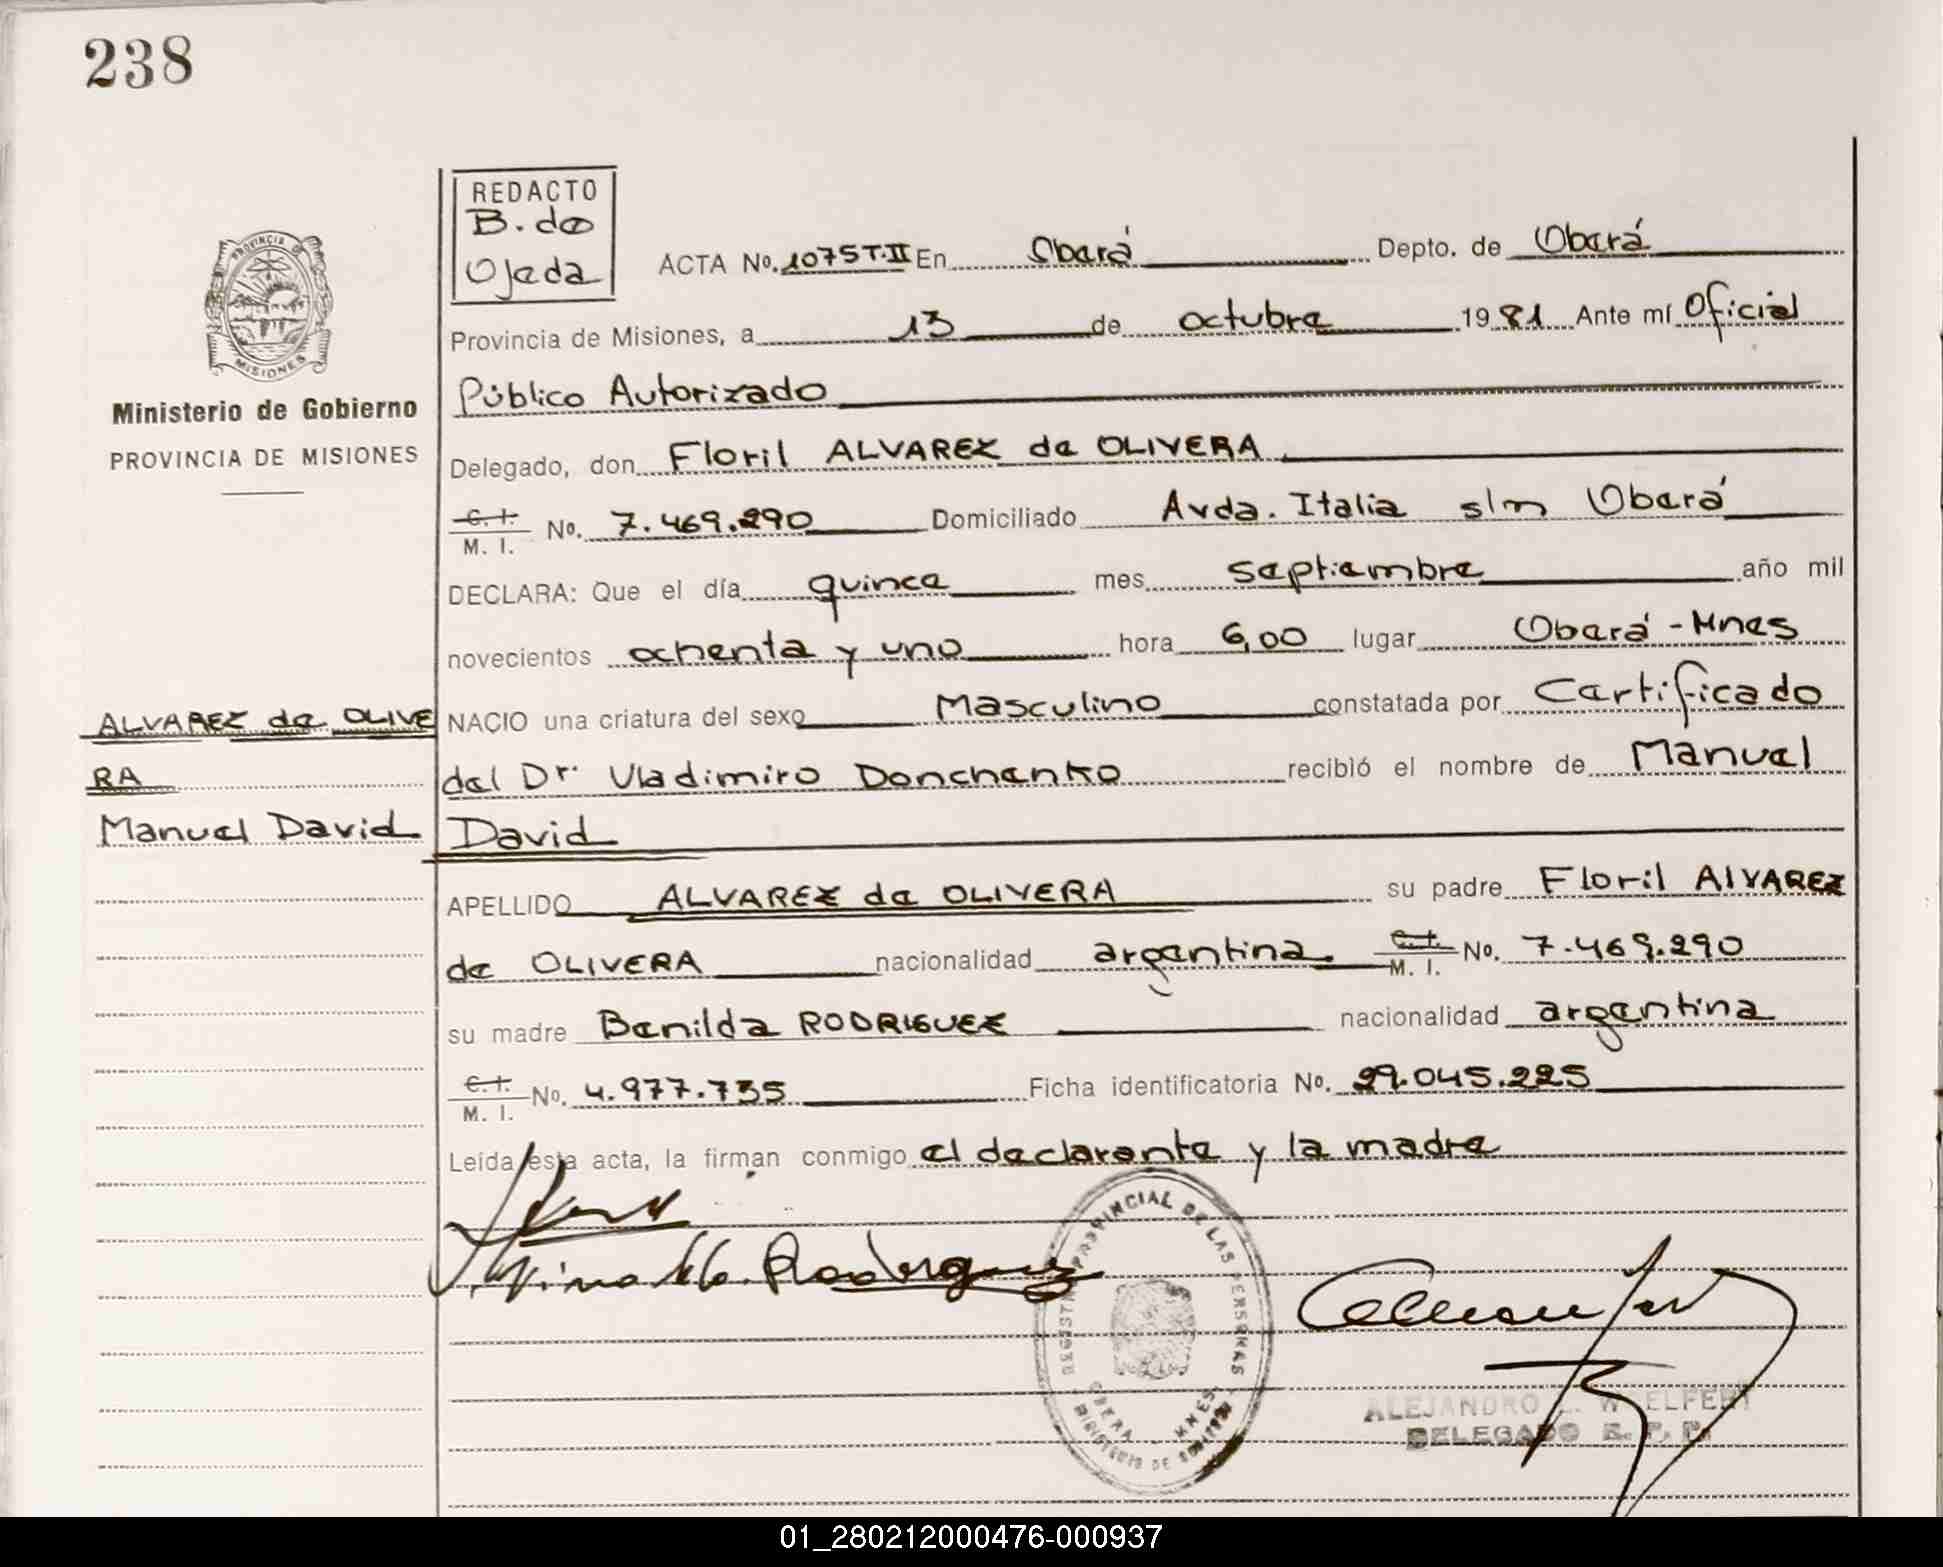 238
REDACTO
B. de
Ojeda
ACTA No. 1075 T.II En Oberá Depto. de Oberá
Provincia de Misiones, a 13 de octubre 1981 Ante mí Oficial
Público Autorizado
Delegado, don Floril ALVAREZ de OLIVERA
C. I. M. I. No. 7.469.290 Domiciliado Avda. Italia s/n Oberá
DECLARA: Que el día quince mes septiembre año mil
novecientos ochenta y uno hora 6,00 lugar Oberá - Mnes
NACIO una criatura del sexo Masculino constatada por Certificado
del Dr. Vladimiro Donchenko recibió el nombre de Manuel
David
APELLIDO ALVAREZ de OLIVERA su padre Floril ALVAREZ
de OLIVERA nacionalidad argentina. C. I. M. I. No. 7.469.290
su madre Benilda RODRIGUEZ nacionalidad argentina
C. I. M. I. No. 4.977.735 Ficha identificatoria No. 29.045.225
Leída esta acta, la firman conmigo el declarante y la madre
Rodriguez
PROVINCIA DE
MISIONES
Ministerio de Gobierno
PROVINCIA DE MISIONES
ALVAREZ de OLIVE
RA
Manuel David
REGISTRO PROVINCIAL DE LAS PERSONAS
OBERA MNES.
MINISTERIO DE GOBIERNO
ALEJANDRO
DELEGADO R. P. P.
01_280212000476-000937